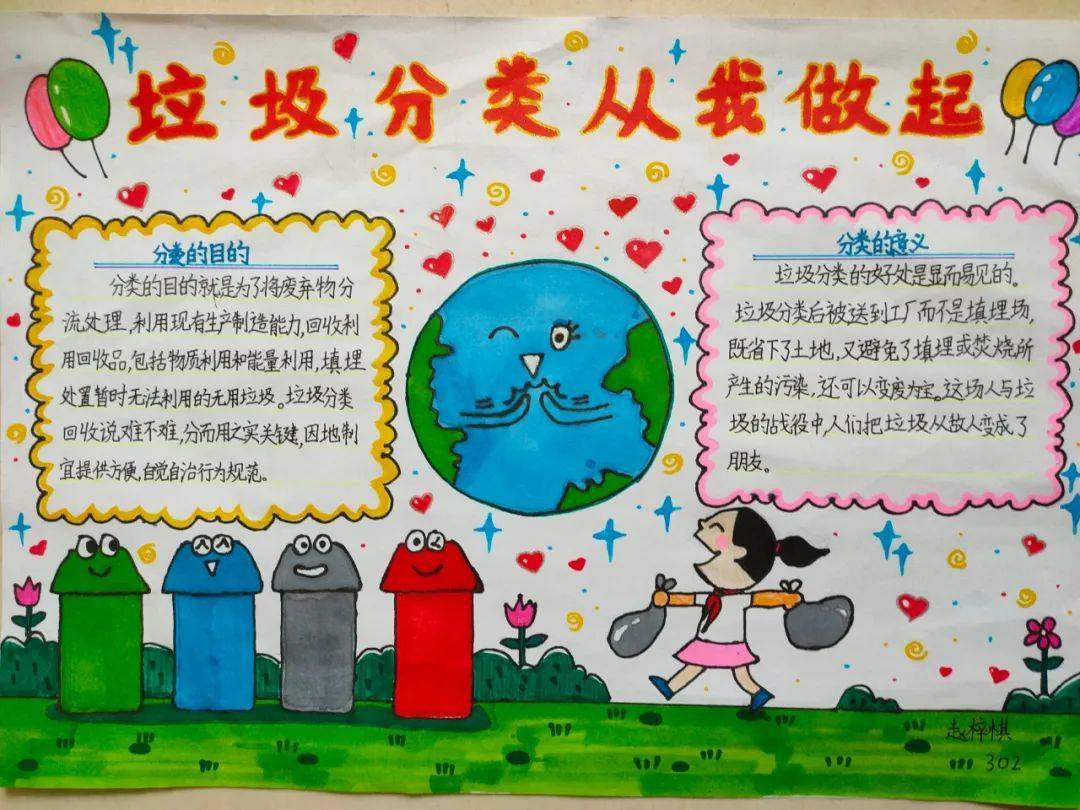 垃圾分类从我做起
分类的目的
分类的目的就是为了将废弃物分
流处理,利用现有生产制造能力,回收利
用回收品,包括物质利用和能量利用,填埋
处置暂时无法利用的无用垃圾。垃圾分类
回收说难不难,分而用之实关键,因地制
宜提供方便,自觉自治行为规范。
分类的意义
垃圾分类的好处是显而易见的。
垃圾分类后被送到工厂而不是填埋场,
既省下了土地,又避免了填埋或焚烧所
产生的污染,还可以变废为宝。这场人与垃
圾的战役中,人们把垃圾从敌人变成了
朋友。
赵梓棋
302